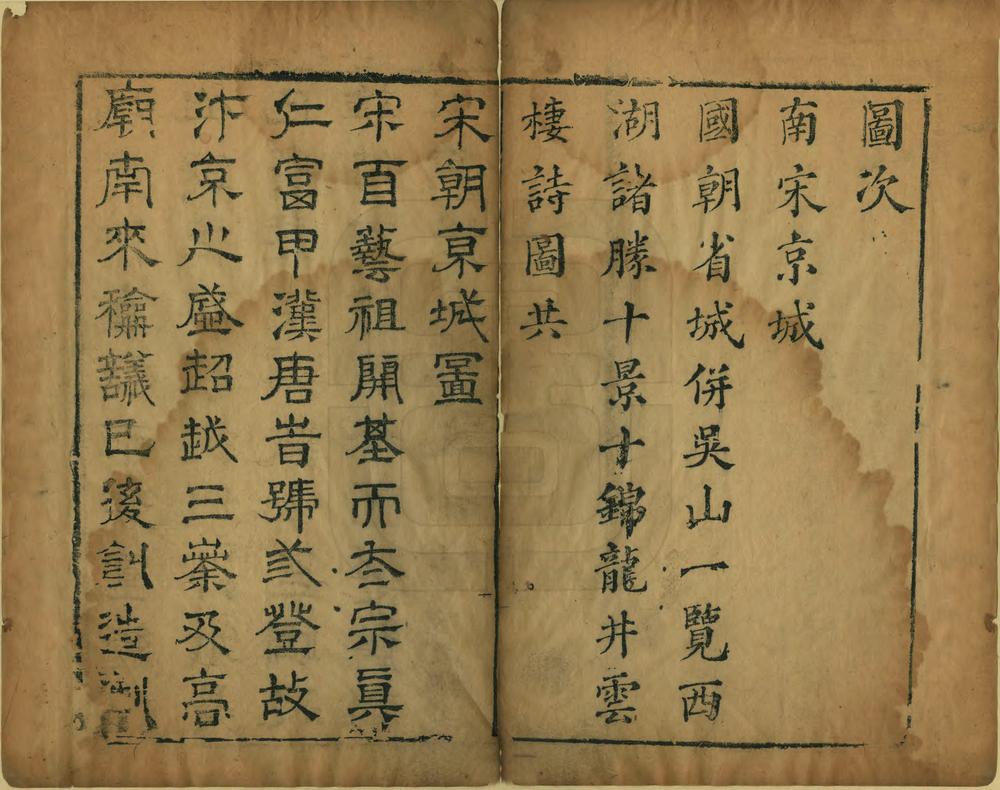 圖次
南宋京城
國朝省城併吳山一覽西
湖諸勝十景十錦龍井雲
棲詩圖共
宋朝京城圖
宋百藝祖開基而太宗眞
仁富甲漢唐昔號弍登故
汴京之盛超越三秦及高
廟南來襘議已後創造制